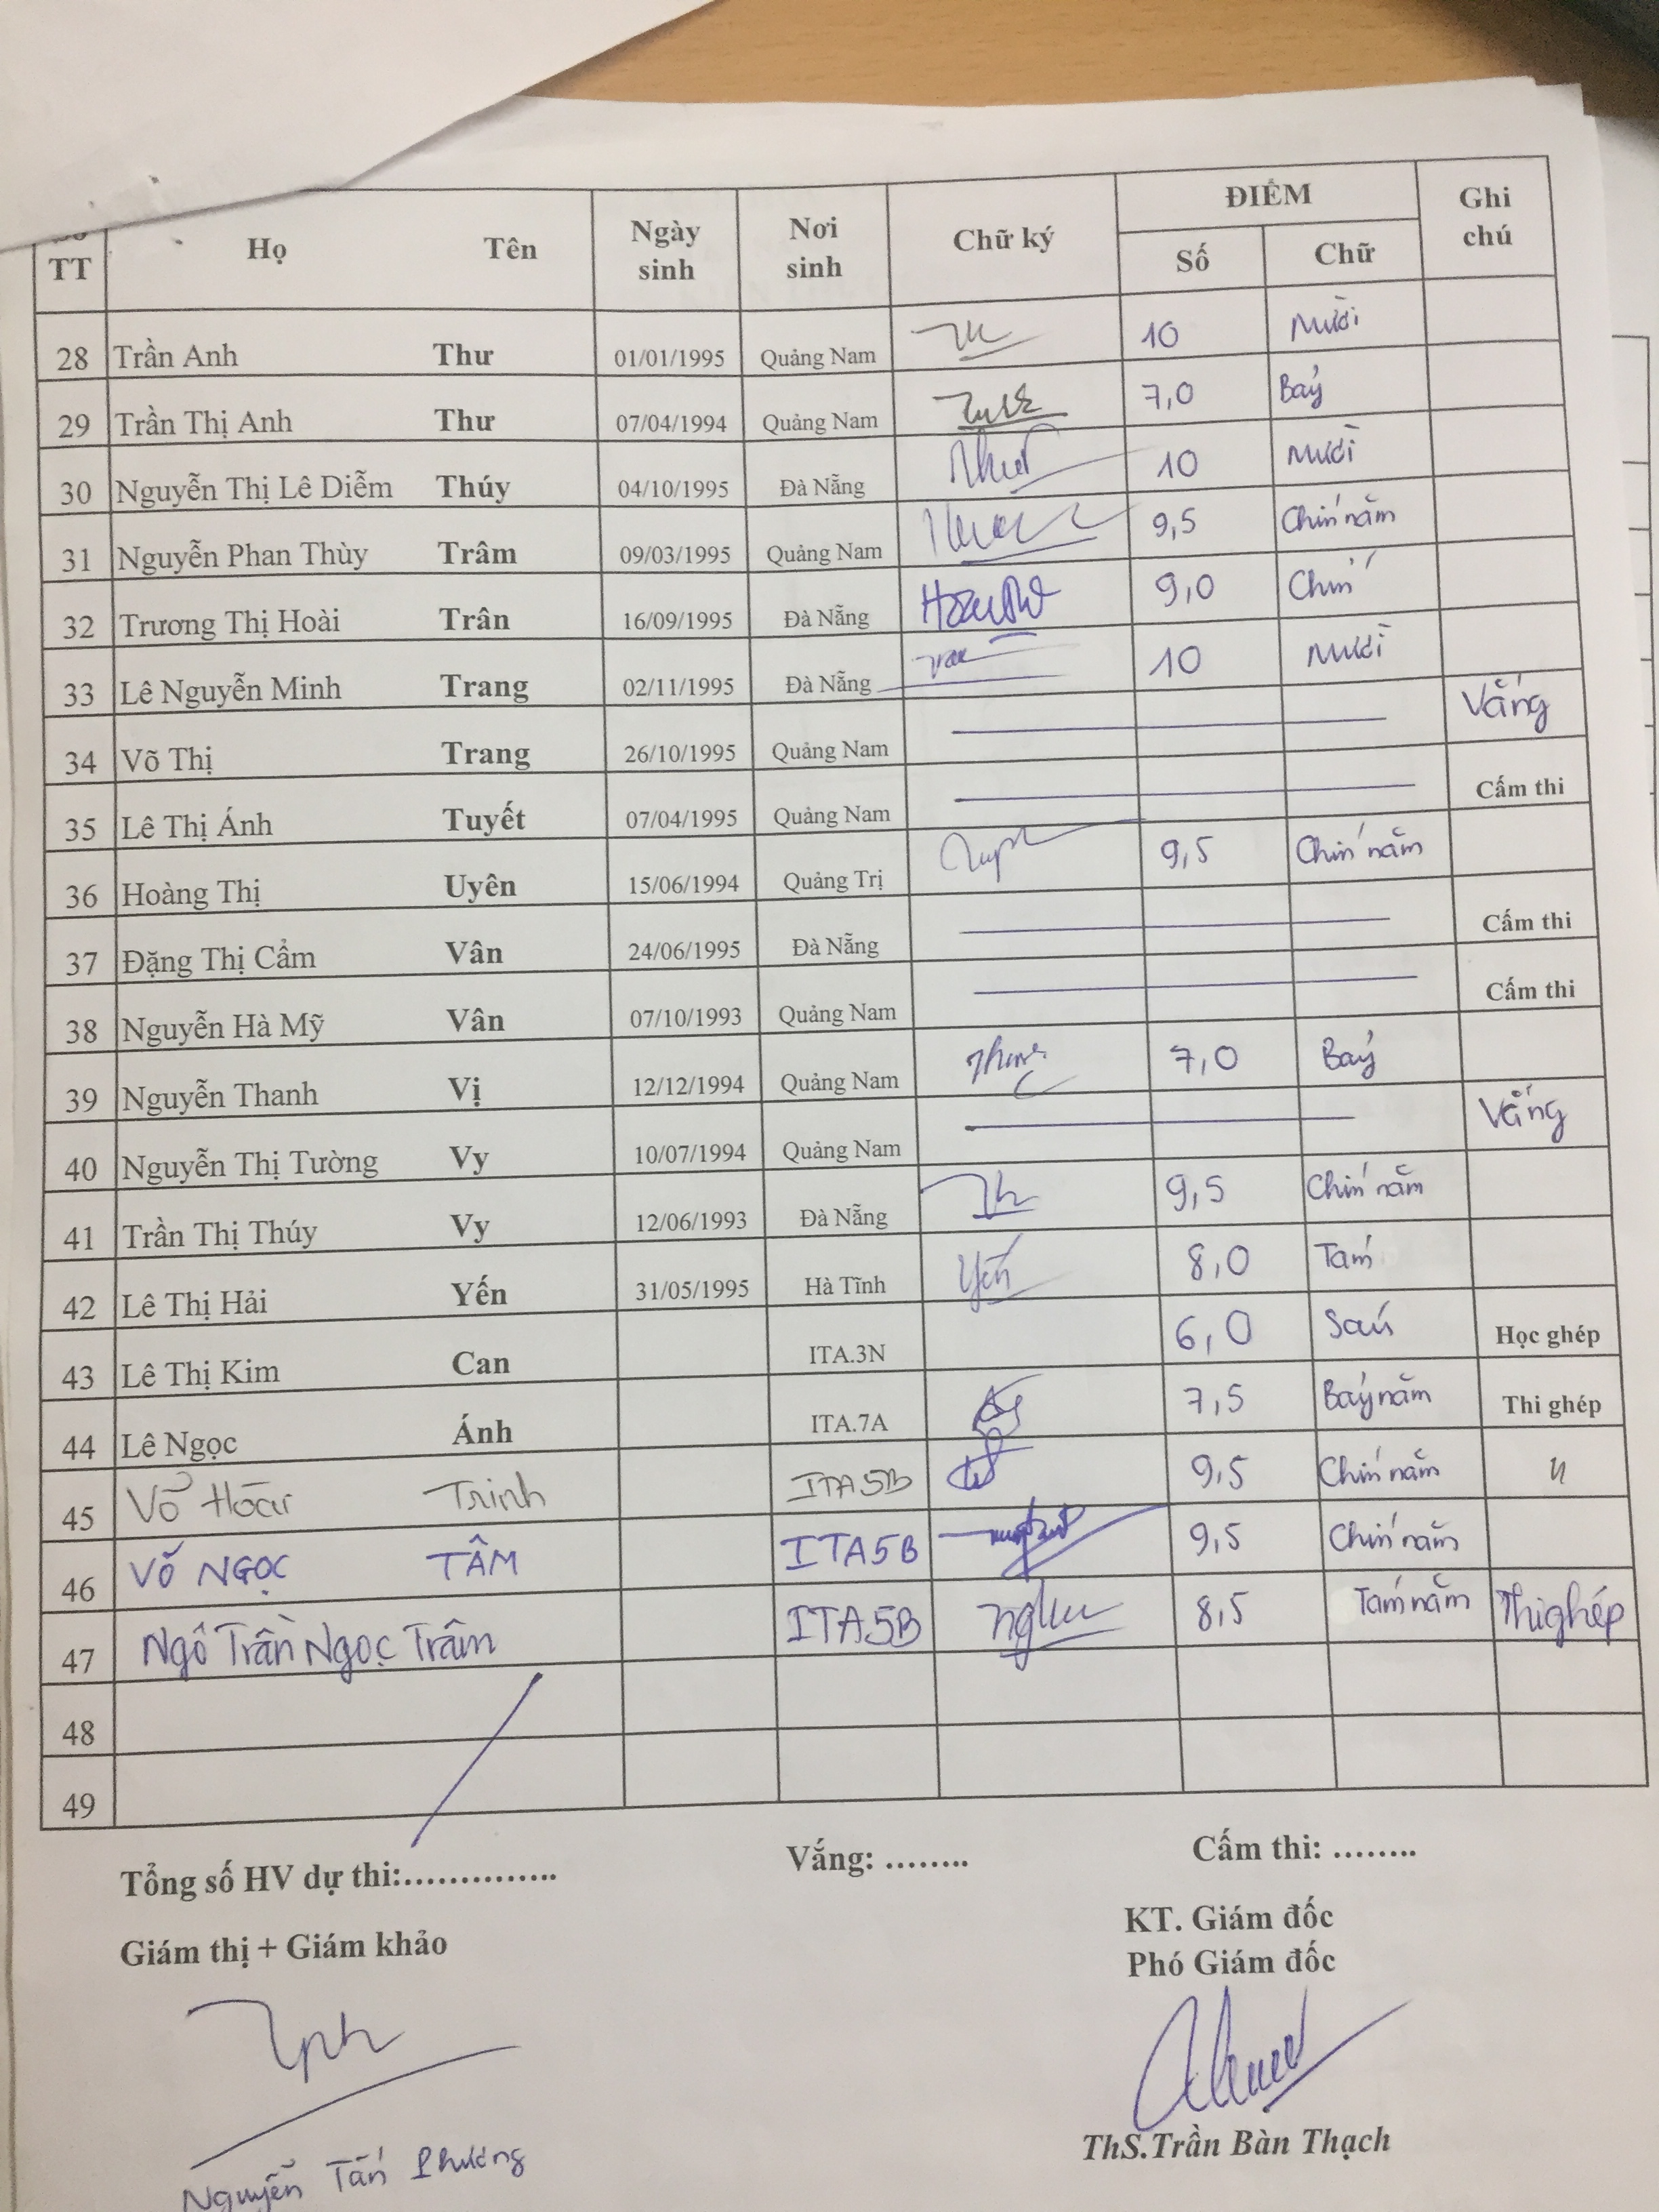 TT Họ Tên Ngày sinh Nơi sinh Chữ ký ĐIỂM Số Chữ Ghi chú
28 Trần Anh Thư 01/01/1995 Quảng Nam 10 Mười
29 Trần Thị Anh Thư 07/04/1994 Quảng Nam 7,0 Bảy
30 Nguyễn Thị Lê Diễm Thúy 04/10/1995 Đà Nẵng 10 Mười
31 Nguyễn Phan Thùy Trâm 09/03/1995 Quảng Nam 9,5 Chín năm
32 Trương Thị Hoài Trân 16/09/1995 Đà Nẵng 9,0 Chín
33 Lê Nguyễn Minh Trang 02/11/1995 Đà Nẵng 10 Mười
34 Võ Thị Trang 26/10/1995 Quảng Nam Vắng
35 Lê Thị Ánh Tuyết 07/04/1995 Quảng Nam Cấm thi
36 Hoàng Thị Uyên 15/06/1994 Quảng Trị 9,5 Chín năm
37 Đặng Thị Cẩm Vân 24/06/1995 Đà Nẵng Cấm thi
38 Nguyễn Hà Mỹ Vân 07/10/1993 Quảng Nam Cấm thi
39 Nguyễn Thanh Vị 12/12/1994 Quảng Nam 7,0 Bảy
40 Nguyễn Thị Tường Vy 10/07/1994 Quảng Nam Vắng
41 Trần Thị Thúy Vy 12/06/1993 Đà Nẵng 9,5 Chín năm
42 Lê Thị Hải Yến 31/05/1995 Hà Tĩnh Yến 8,0 Tám
43 Lê Thị Kim Can ITA.3N 6,0 Sáu Học ghép
44 Lê Ngọc Ánh ITA.7A 7,5 Bảy năm Thi ghép
45 Võ Hoài Trinh ITA5B 9,5 Chín năm "
46 VÕ NGỌC TÂM ITA5B 9,5 Chín năm
47 Ngô Trần Ngọc Trâm ITA5B 8,5 Tám năm Thi ghép
48
49
Tổng số HV dự thi:.............. Vắng: ........ Cấm thi: ........
Giám thị + Giám khảo KT. Giám đốc
Phó Giám đốc
ThS.Trần Bàn Thạch
Nguyễn Tấn Phương